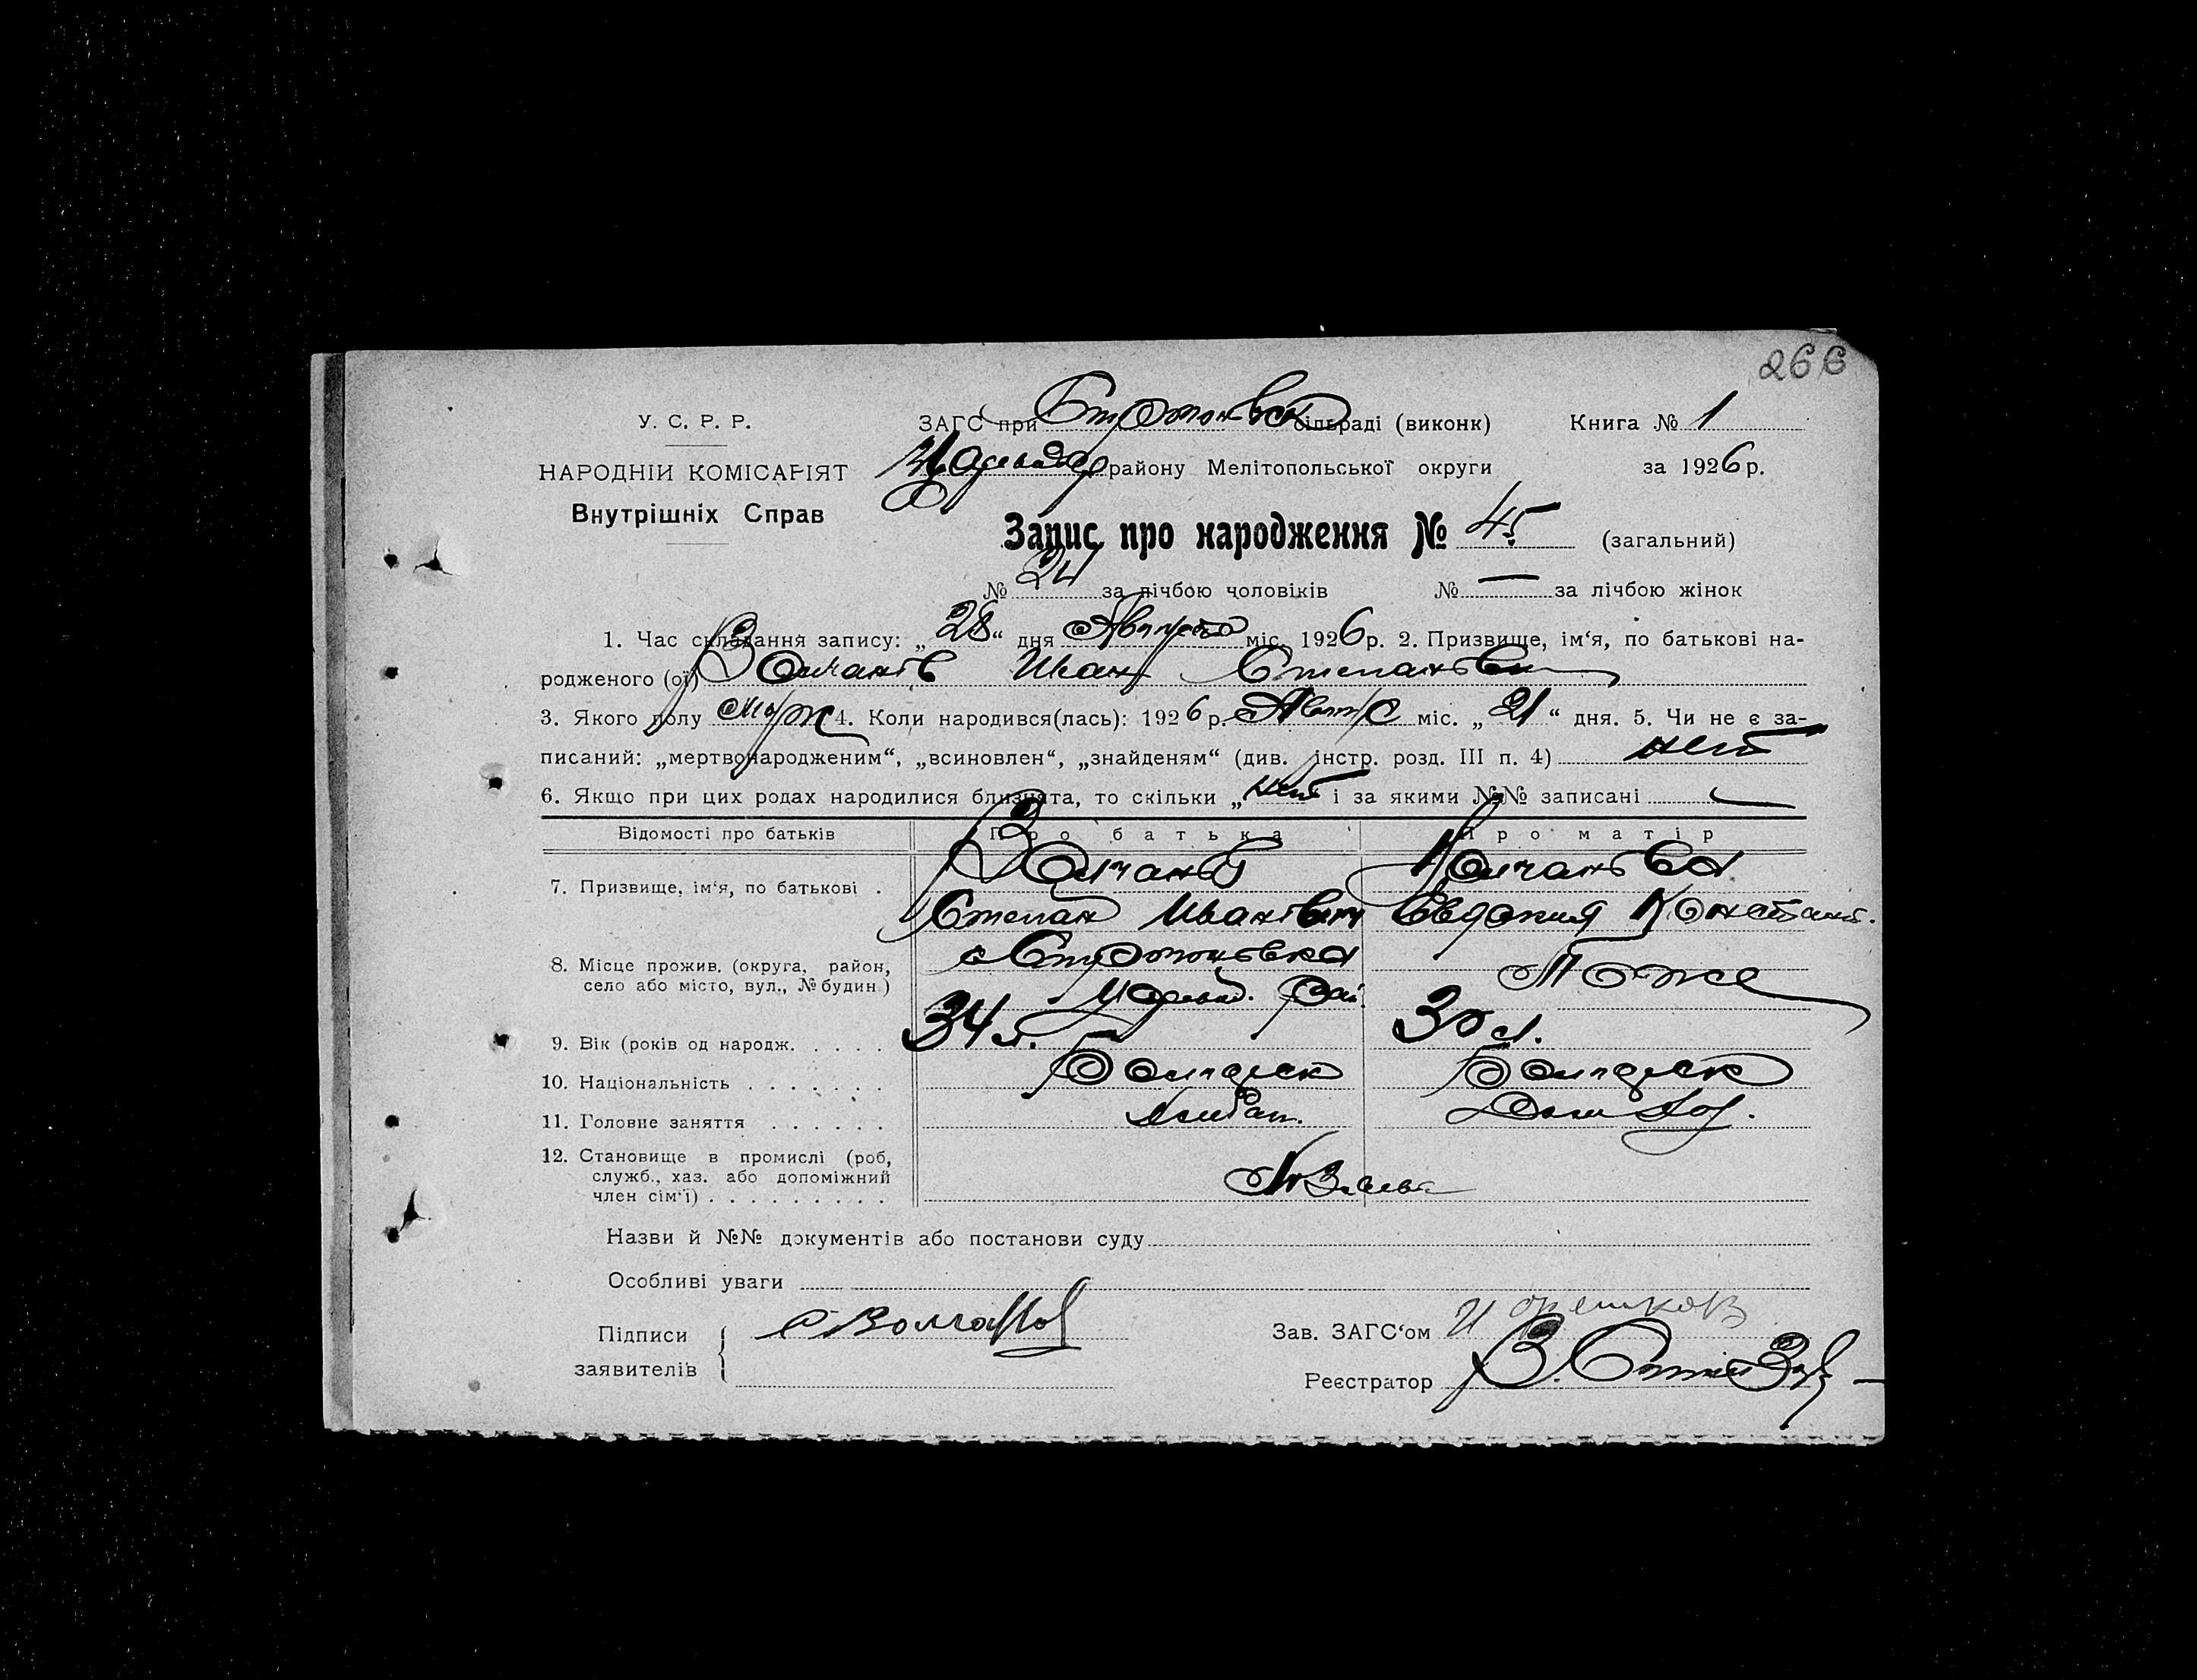 266
У. С. Р. Р.
ЗАГС при Строгоновск сільраді (виконк) Книга № 1
НАРОДНІЙ КОМІСАРІЯТ
району Мелітопольської округи за 1926 р.
Внутрішніх Справ
Запис про народження № 45 (загальний)
№ 24 за лічбою чоловіків № — за лічбою жінок
1. Час складання запису: „28“ дня Августа міс. 1926 р. 2. Призвище, ім‘я, по батькові на-
родженого (ої) Волчанов Иван Степанович
3. Якого полу Муж 4. Коли народився(лась): 1926 р. Август міс. „21“ дня. 5. Чи не є за-
писаний: „мертвонародженим“, „всиновлен“, „знайденям“ (див. інстр. розд. III п. 4) нет
6. Якщо при цих родах народилися близнята, то скільки „нет і за якими №№ записані —
Відомості про батьків Про батька Про матір
7. Призвище, ім‘я, по батькові . Волчанов Волчанова
Степан Иванович Евдокия Констант.
8. Місце прожив. (округа, район,
село або місто, вул., № будин.)
с Строгоновка Тоже
рай.
9. Вік (років од народж. . . . . 34 г. 30 л.
10. Національність . . . . . . . Болгарск Болгарск
11. Головне заняття . . . . . . Хлебоп. Дом Хоз.
12. Становище в промислі (роб,
служб., хаз. або допоміжний
член сім‘ї) . . . . . . . . . Хозяева
Назви й №№ документів або постанови суду
Особливі уваги
Підписи
заявителів
С Волчанов
Зав. ЗАГС‘ом
Реєстратор